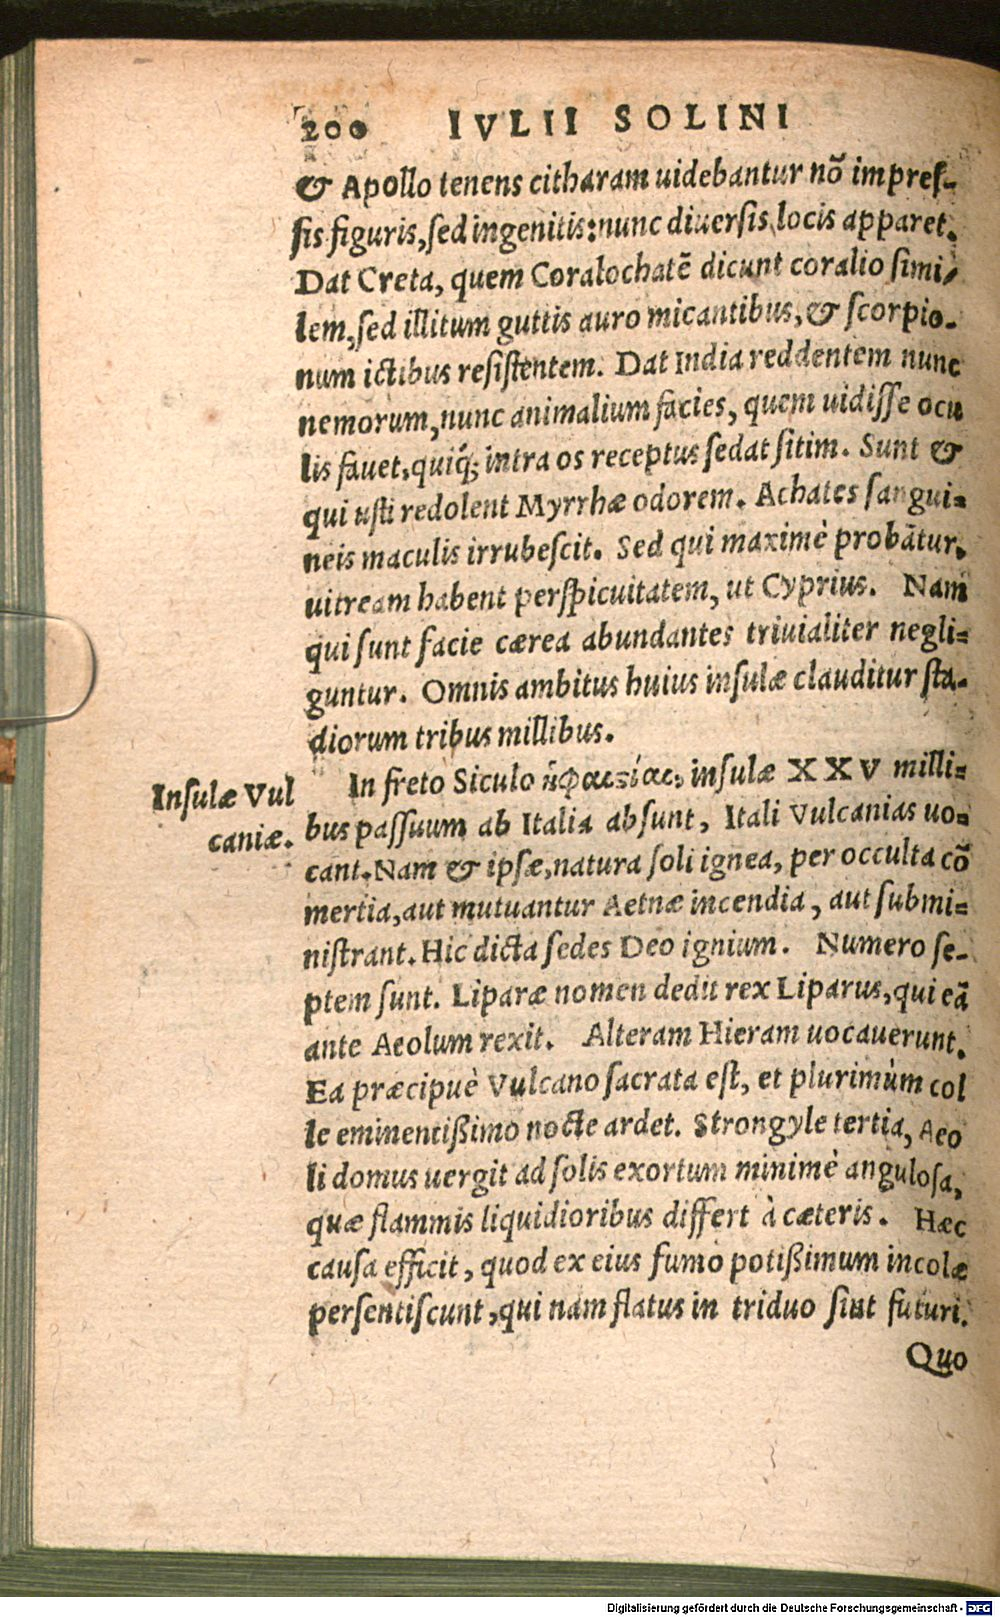 200 IVLII SOLINI
& Apollo tenens citharam uidebantur nõ impreſ-
ſis figuris, ſed ingenitis: nunc diuerſis locis apparet.
Dat Creta, quem Coralochatẽ dicunt coralio ſimi-
lem, ſed illitum guttis auro micantibus, & ſcorpio-
num ictibus reſiſtentem. Dat India reddentem nunc
nemorum, nunc animalium facies, quem uidiſſe ocu
lis fauet, quiq́; intra os receptus ſedat ſitim. Sunt &
qui uſti redolent Myrrhæ odorem. Achates ſangui-
neis maculis irrubeſcit. Sed qui maximè probãtur,
uitream habent perſpicuitatem, ut Cyprius. Nam
qui ſunt facie cærea abundantes triuialiter negli-
guntur. Omnis ambitus huius inſulæ clauditur ſta-
diorum tribus millibus.
Inſulæ Vul
caniæ.
In freto Siculo ἡφαιςίαι, inſulæ XXV milli-
bus paſſuum ab Italia abſunt, Itali Vulcanias uo-
cant. Nam & ipſæ, natura ſoli ignea, per occulta cõ
mertia, aut mutuantur Aetnæ incendia, aut ſubmi-
niſtrant. Hic dicta ſedes Deo ignium. Numero ſe-
ptem ſunt. Liparæ nomen dedit rex Liparus, qui eã
ante Aeolum rexit. Alteram Hieram uocauerunt.
Ea præcipuè Vulcano ſacrata eſt, et plurimùm col
le eminentißimo nocte ardet. Strongyle tertia, Aeo
li domus uergit ad ſolis exortum minimè anguloſa,
quæ flammis liquidioribus differt à cæteris. Hæc
cauſa efficit, quod ex eius fumo potißimum incolæ
perſentiſcunt, qui nam flatus in triduo ſint futuri.
Quo
Digitalisierung gefördert durch die Deutsche Forschungsgemeinschaft - DFG